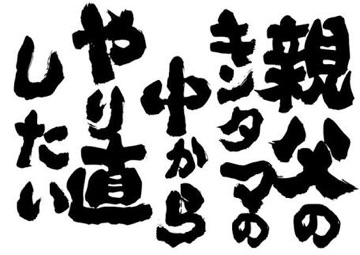 親父の
キンタマの
中から
やり直
したい